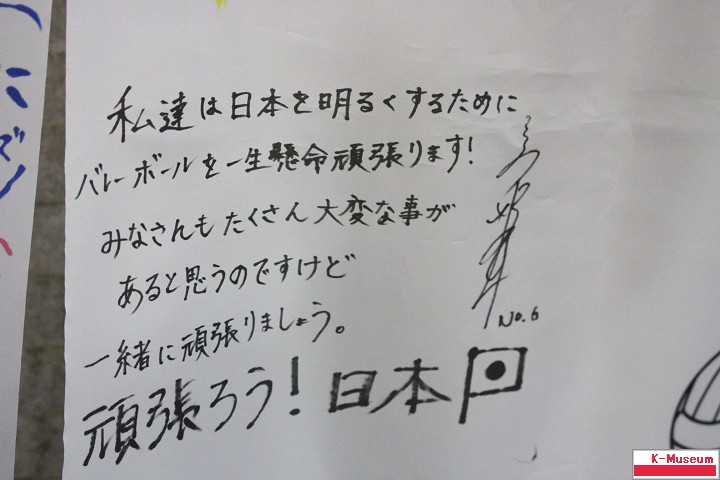 私達は日本を明るくするために
バレーボールを一生懸命頑張ります!
みなさんもたくさん大変な事が
あると思うのですけど
一緒に頑張りましょう。
頑張ろう!日本
No.6
K-Museum